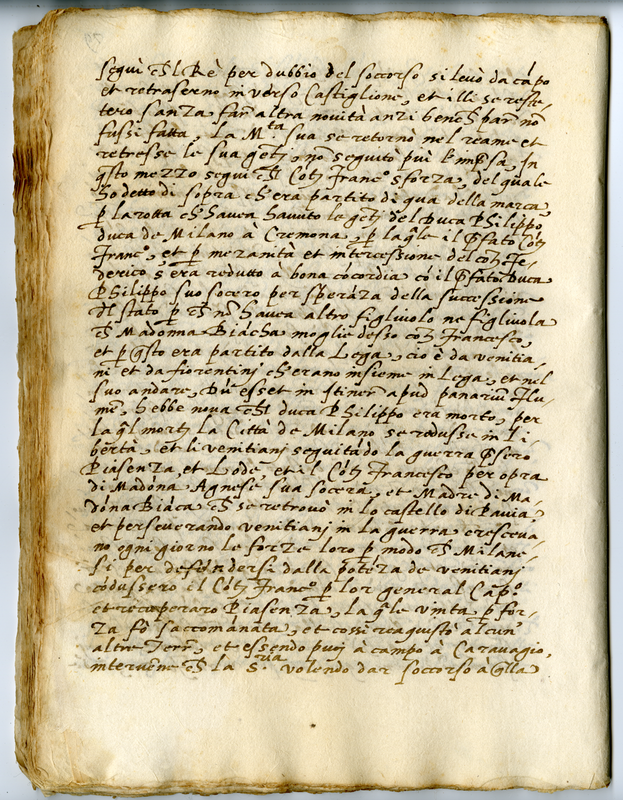 seguì ch'l Rè per dubbio del soccorso si levò da cápo
et retrasereno in verso Castiglione, et illi se reste-
tero sanza far altra novità anzi bench par nõ
fussi fatta, La M.ta sua se retornò nel reame et
retresse le sua gẽtj, nõ seguitò piú l'imp̃sa, In
q̃sto mezzo seguì ch'l Cõtj Franc.o sforza, del quale
ho detto di sopra ch'era partito di qua della marca,
p̱ la rotta ch'havea havuto le gẽtj del Duca Philippo
duca de Milano à Cremona, p̱ la q̃le il p̃fato Cõtj
Franc.o, et p̱ mezanità et intercessione del cõtj Fe-
derico s'era redutto a bona cõcordia cõ il p̃fato Duca
Philippo suo socero per sperãza della successione
del stato p̱ ch nõ havea altro figliuolo ne figliuola
ch Madonna Biãcha moglie d'esso cõtj Francesco,
et p̱ q̃sto era partito dalla Lega, ciò è da venitia-
ni et da fiorentinj ch'erano insieme in Lega, et nel
suo andare, Dũ esset in itiner apud panariũ flu-
mẽ, hebbe nova ch'l duca Philippo era morto, per
la q̃l mortj la Città de Milano se redusse in li-
bertà, et li venitianj seguitãdo la guerra p̃sero
Piasenza, et Lode, et il Cõtj Francesco per opra
di Madõna Agnese sua socera, et Madre di Ma-
dõna Biãca ch se retrovò in lo castello di Pavia,
et perseverando venitianj in la guerra cresceva-
no ogni giorno le forze loro p̱ modo ch Milane-
si per defẽndersi dalla potẽza de venitianj
cõdussero il Cõtj Franc.o p̱ lor general Cap.o
et recuperaro Piasenza, la q̃le vinta p̱ for-
za fò saccomanata, et cossì reaquistò alcun'
altre Terr̃, et essendo puoj à campo à Caravagio,
intervẽne ch la S.ria volendo dar soccorso à q̃lla